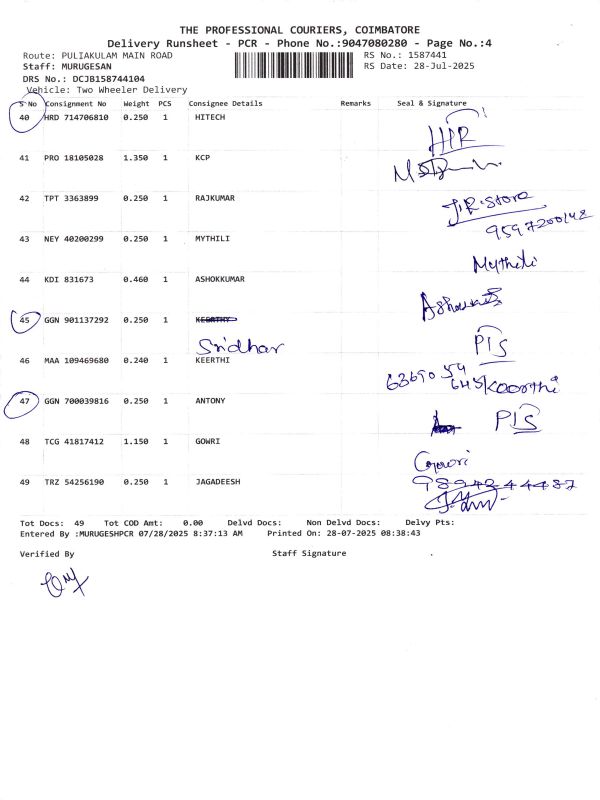 THE PROFESSIONAL COURIERS, COIMBATORE
Delivery Runsheet - PCR - Phone No.:9047080280 - Page No.:4
Route: PULIAKULAM MAIN ROAD RS No.: 1587441
Staff: MURUGESAN RS Date: 28-Jul-2025
DRS No.: DCJB158744104
Vehicle: Two Wheeler Delivery
S No Consignment No Weight PCS Consignee Details Remarks Seal & Signature
40 HRD 714706810 0.250 1 HITECH
41 PRO 18105028 1.350 1 KCP
42 TPT 3363899 0.250 1 RAJKUMAR
J.R. Store
9597200142
43 NEY 40200299 0.250 1 MYTHILI
Mythili
44 KDI 831673 0.460 1 ASHOKKUMAR
45 GGN 901137292 0.250 1 KEERTHY
Sridhar
46 MAA 109469680 0.240 1 KEERTHI
63690 59
645
47 GGN 700039816 0.250 1 ANTONY
48 TCG 41817412 1.150 1 GOWRI
Gowri
49 TRZ 54256190 0.250 1 JAGADEESH
9894244487
Tot Docs: 49 Tot COD Amt: 0.00 Delvd Docs: Non Delvd Docs: Delvy Pts:
Entered By :MURUGESHPCR 07/28/2025 8:37:13 AM Printed On: 28-07-2025 08:38:43
Verified By Staff Signature